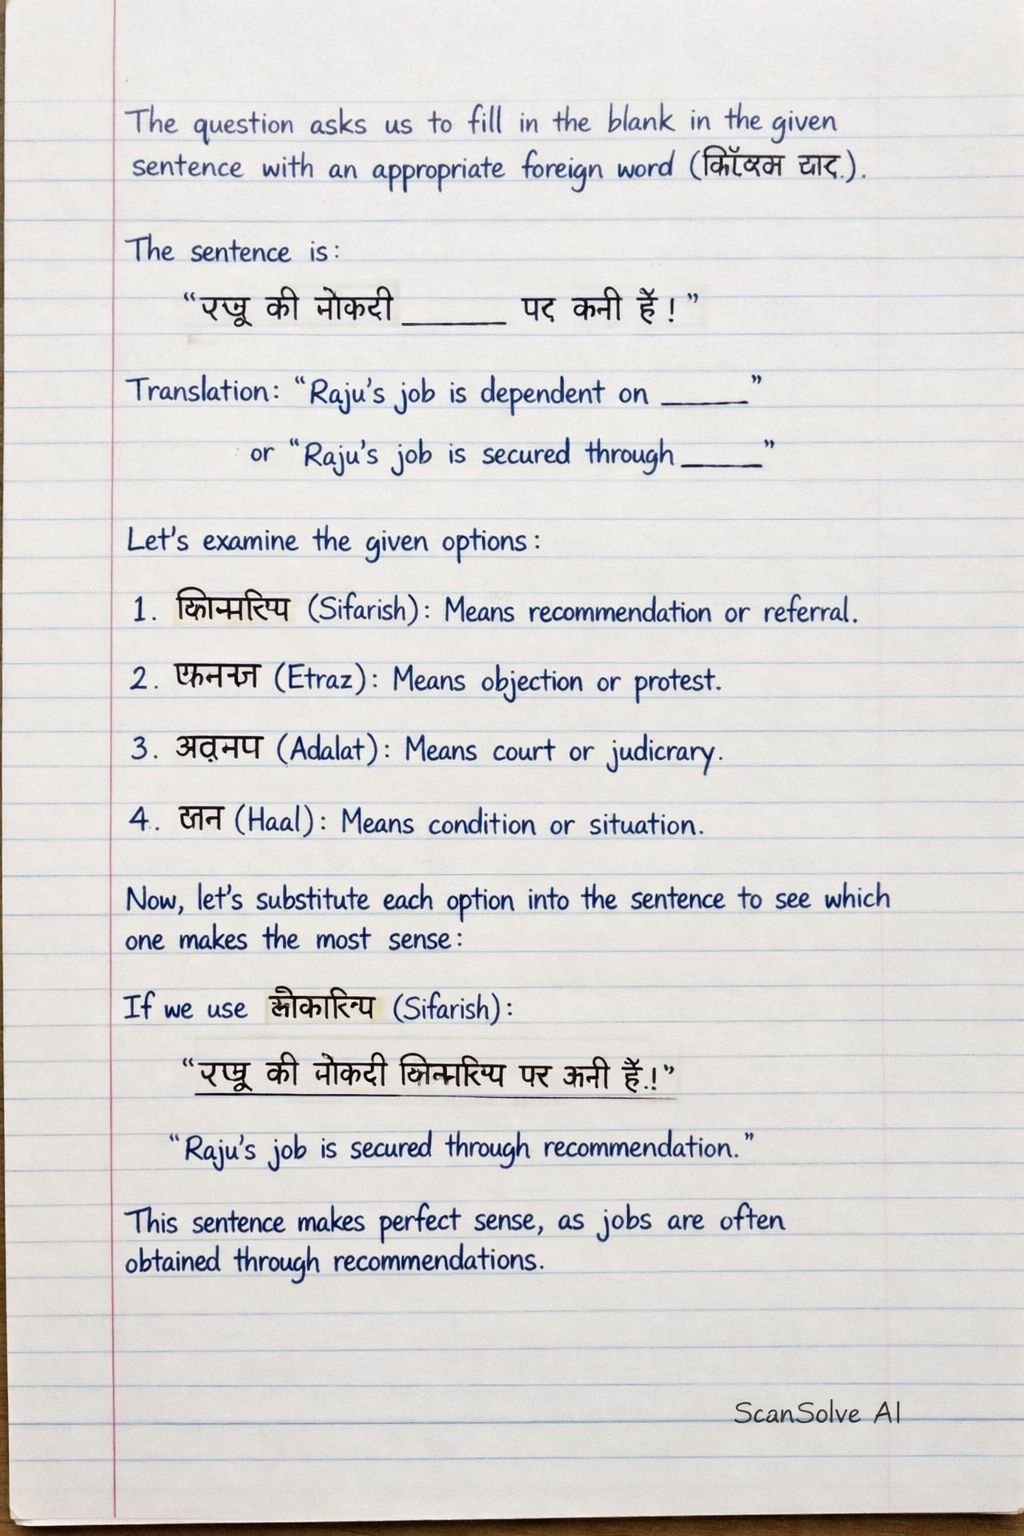 The question asks us to fill in the blank in the given
sentence with an appropriate foreign word ( ).
The sentence is:
" की नोकदी ______ पद कनी है ! "
Translation: "Raju's job is dependent on _____"
or "Raju's job is secured through _____"
Let's examine the given options:
1. (Sifarish): Means recommendation or referral.
2. (Etraz): Means objection or protest.
3. (Adalat): Means court or judicrary.
4. (Haal): Means condition or situation.
Now, let's substitute each option into the sentence to see which
one makes the most sense:
If we use (Sifarish):
" की नोकदी पर है.!"
"Raju's job is secured through recommendation."
This sentence makes perfect sense, as jobs are often
obtained through recommendations.
ScanSolve AI